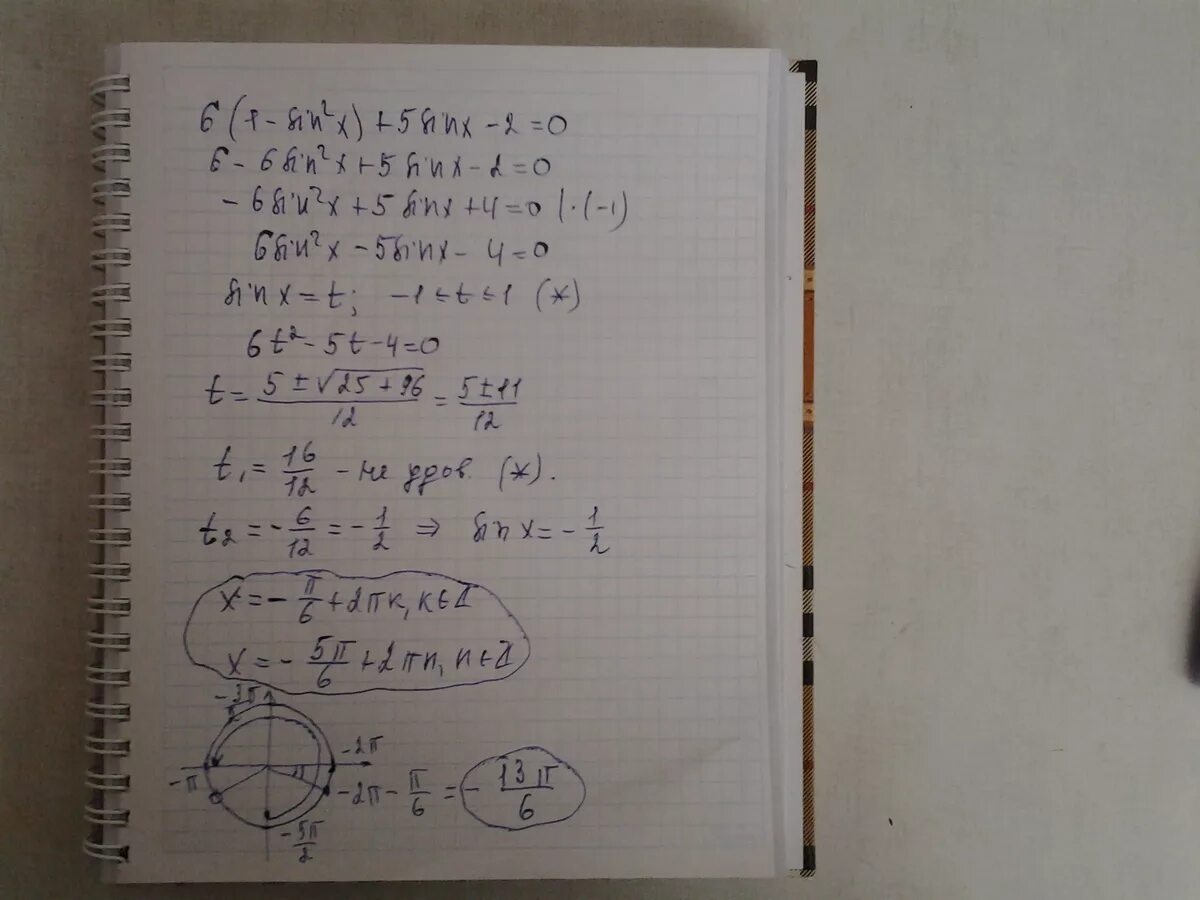 6(1 - sin²x) + 5 sin x - 2 = 0
6 - 6 sin²x + 5 sin x - 2 = 0
- 6 sin²x + 5 sin x + 4 = 0 | · (-1)
6 sin²x - 5 sin x - 4 = 0
sin x = t; -1 ≤ t ≤ 1 (*)
6t² - 5t - 4 = 0
t = (5 ± √(25 + 96))/12 = (5 ± 11)/12
t₁ = 16/12 - не удов. (*).
t₂ = - 6/12 = - 1/2 ⇒ sin x = - 1/2
x = - π/6 + 2πk, k ∈ Z
x = - 5π/6 + 2πn, n ∈ Z
-2π
-π
-2π - π/6 = - 13π/6
- 5π/2